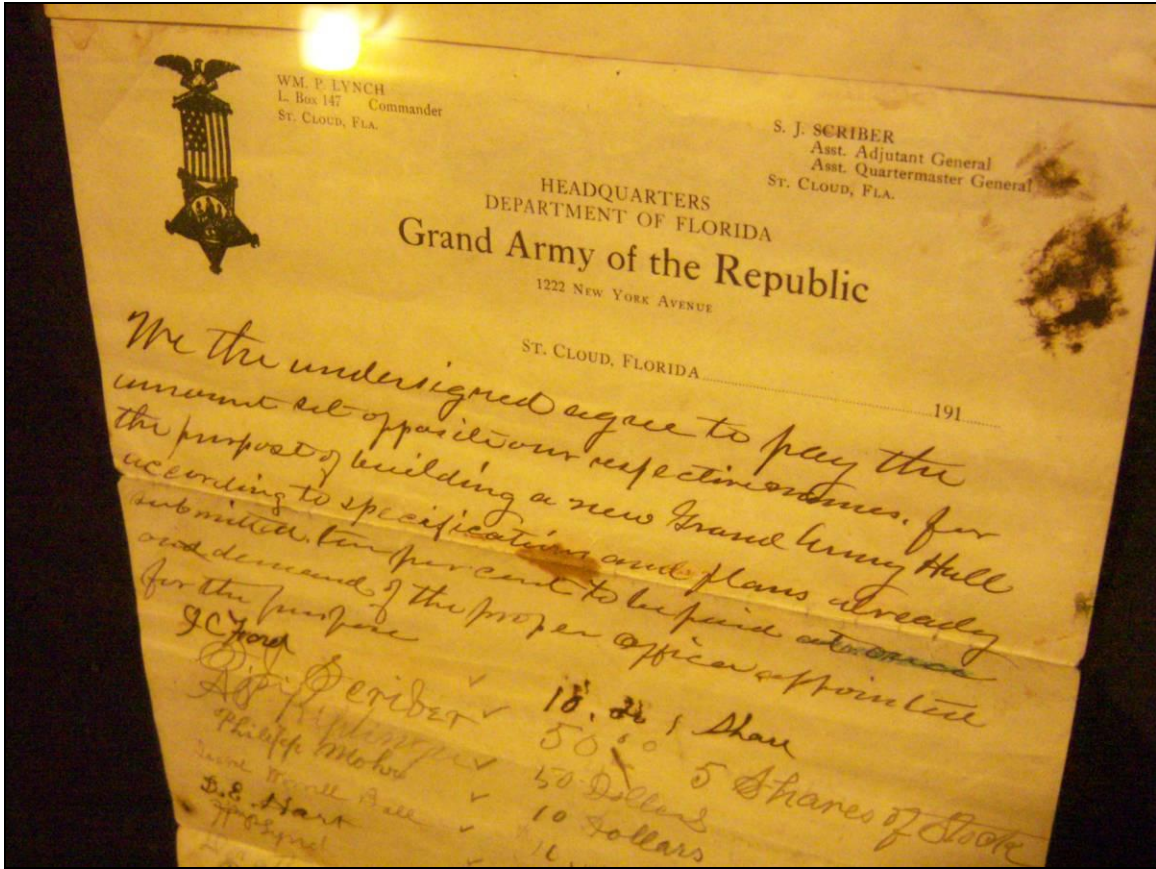 WM. P. LYNCH
L. Box 147 Commander
ST. CLOUD, FLA.
S. J. SCRIBER
Asst. Adjutant General
Asst. Quartermaster General
ST. CLOUD, FLA.
HEADQUARTERS
DEPARTMENT OF FLORIDA
Grand Army of the Republic
1222 NEW YORK AVENUE
ST. CLOUD, FLORIDA 191
We the undersigned agree to pay the
amount set opposite our respective names, for
the purpose of building a new Grand Army Hall
according to specification and plans already
submitted, ten per cent to be paid at once
and demand of the proper officer appointed
for the purpose
Scriber 50 5 Shares of Stock
50 Dollars
Philipp Mohr 10 Dollars
D.E. Hart